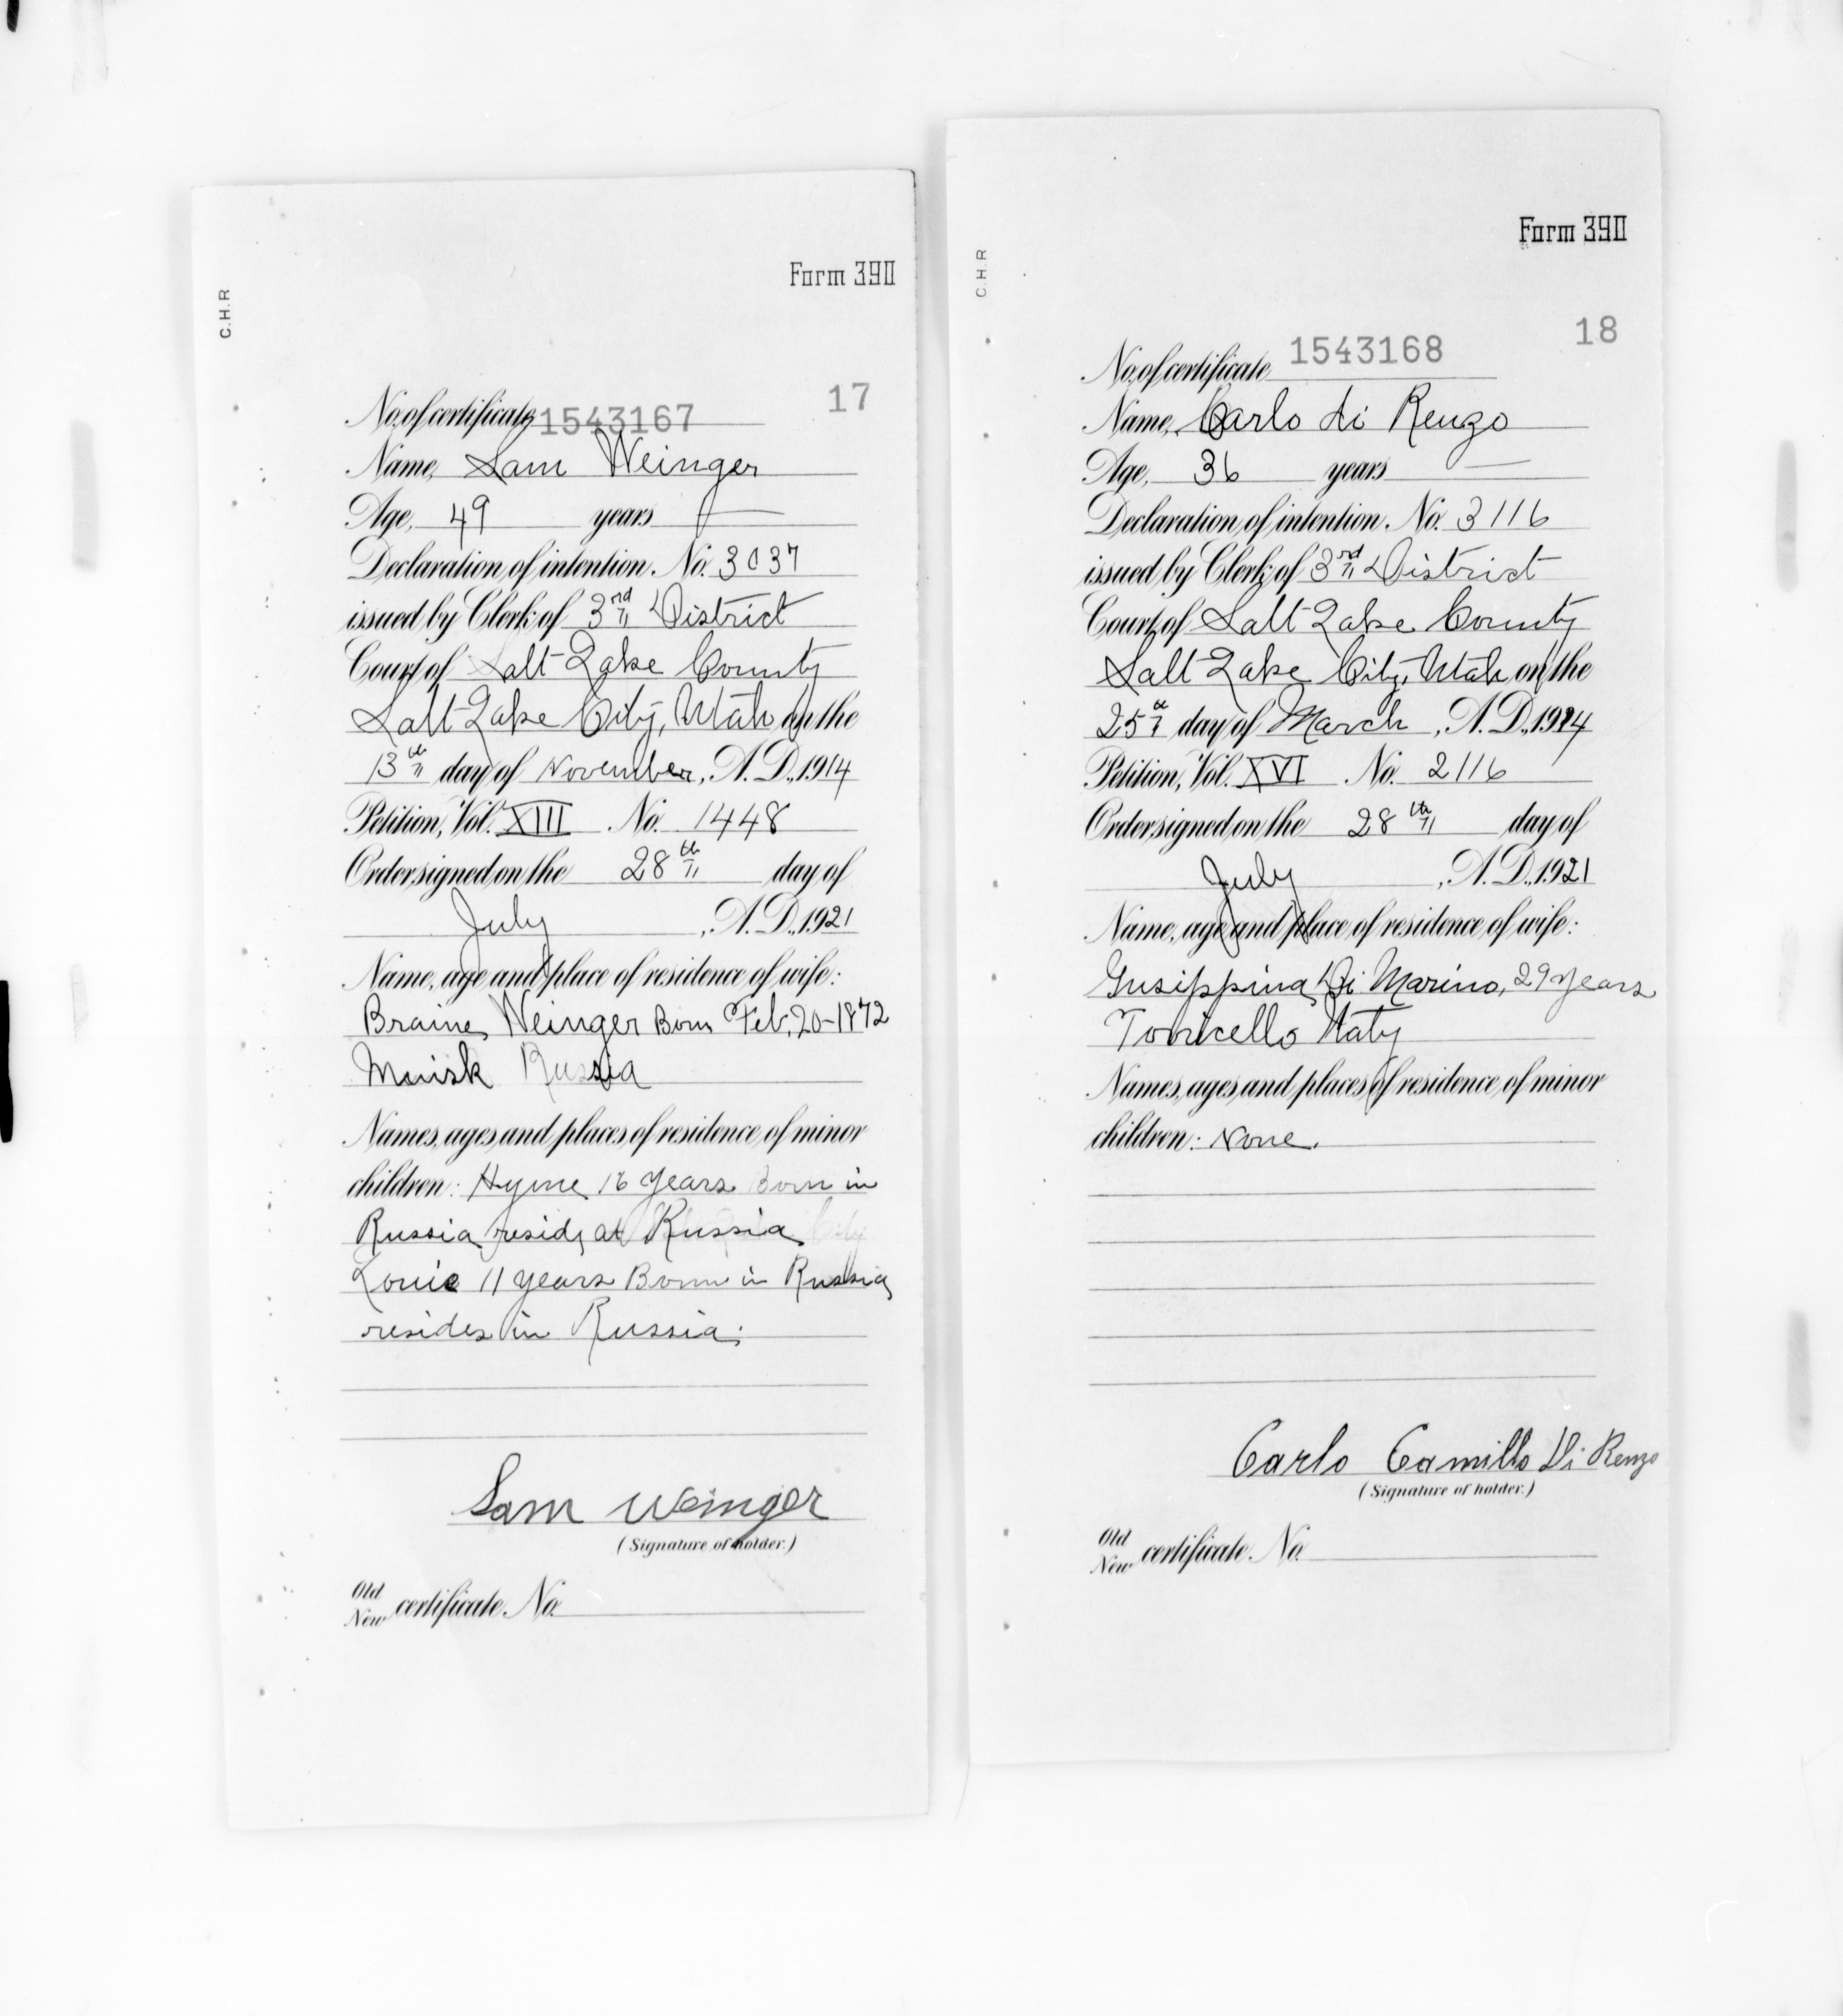 Form 390
C.H.R
17
No. of certificate, 1543167
Name, Sam Weinger
Age, 49 years
Declaration of intention. No. 3037
issued by Clerk of 3rd District
Court of Salt Lake County
Salt Lake City, Utah on the
13th day of November, A. D., 1914
Petition, Vol. XIII No. 1448
Order signed on the 28th day of
July, A. D., 1921
Name, age and place of residence of wife:
Braine Weinger Born Feb. 20-1872
Minsk Russia
Names, ages and places of residence of minor
children: Hyme 16 years Born in
Russia resids at Russia
Louie 11 years Born in Russia
resides in Russia.
Sam Weinger
(Signature of holder.)
Old
New certificate No.
Form 390
C.H.R
18
No. of certificate 1543168
Name, Carlo di Renzo
Age, 36 years
Declaration of intention. No. 3116
issued by Clerk of 3rd District
Court of Salt Lake County
Salt Lake City, Utah on the
25th day of March, A. D., 1914
Petition, Vol. XVI No. 2116
Order signed on the 28th day of
July, A. D., 1921
Name, age and place of residence of wife:
Gusippina Di Marino, 29 years
Torricello Italy
Names, ages and places of residence of minor
children: None.
Carlo Camillo Di Renzo
(Signature of holder.)
Old
New certificate No.